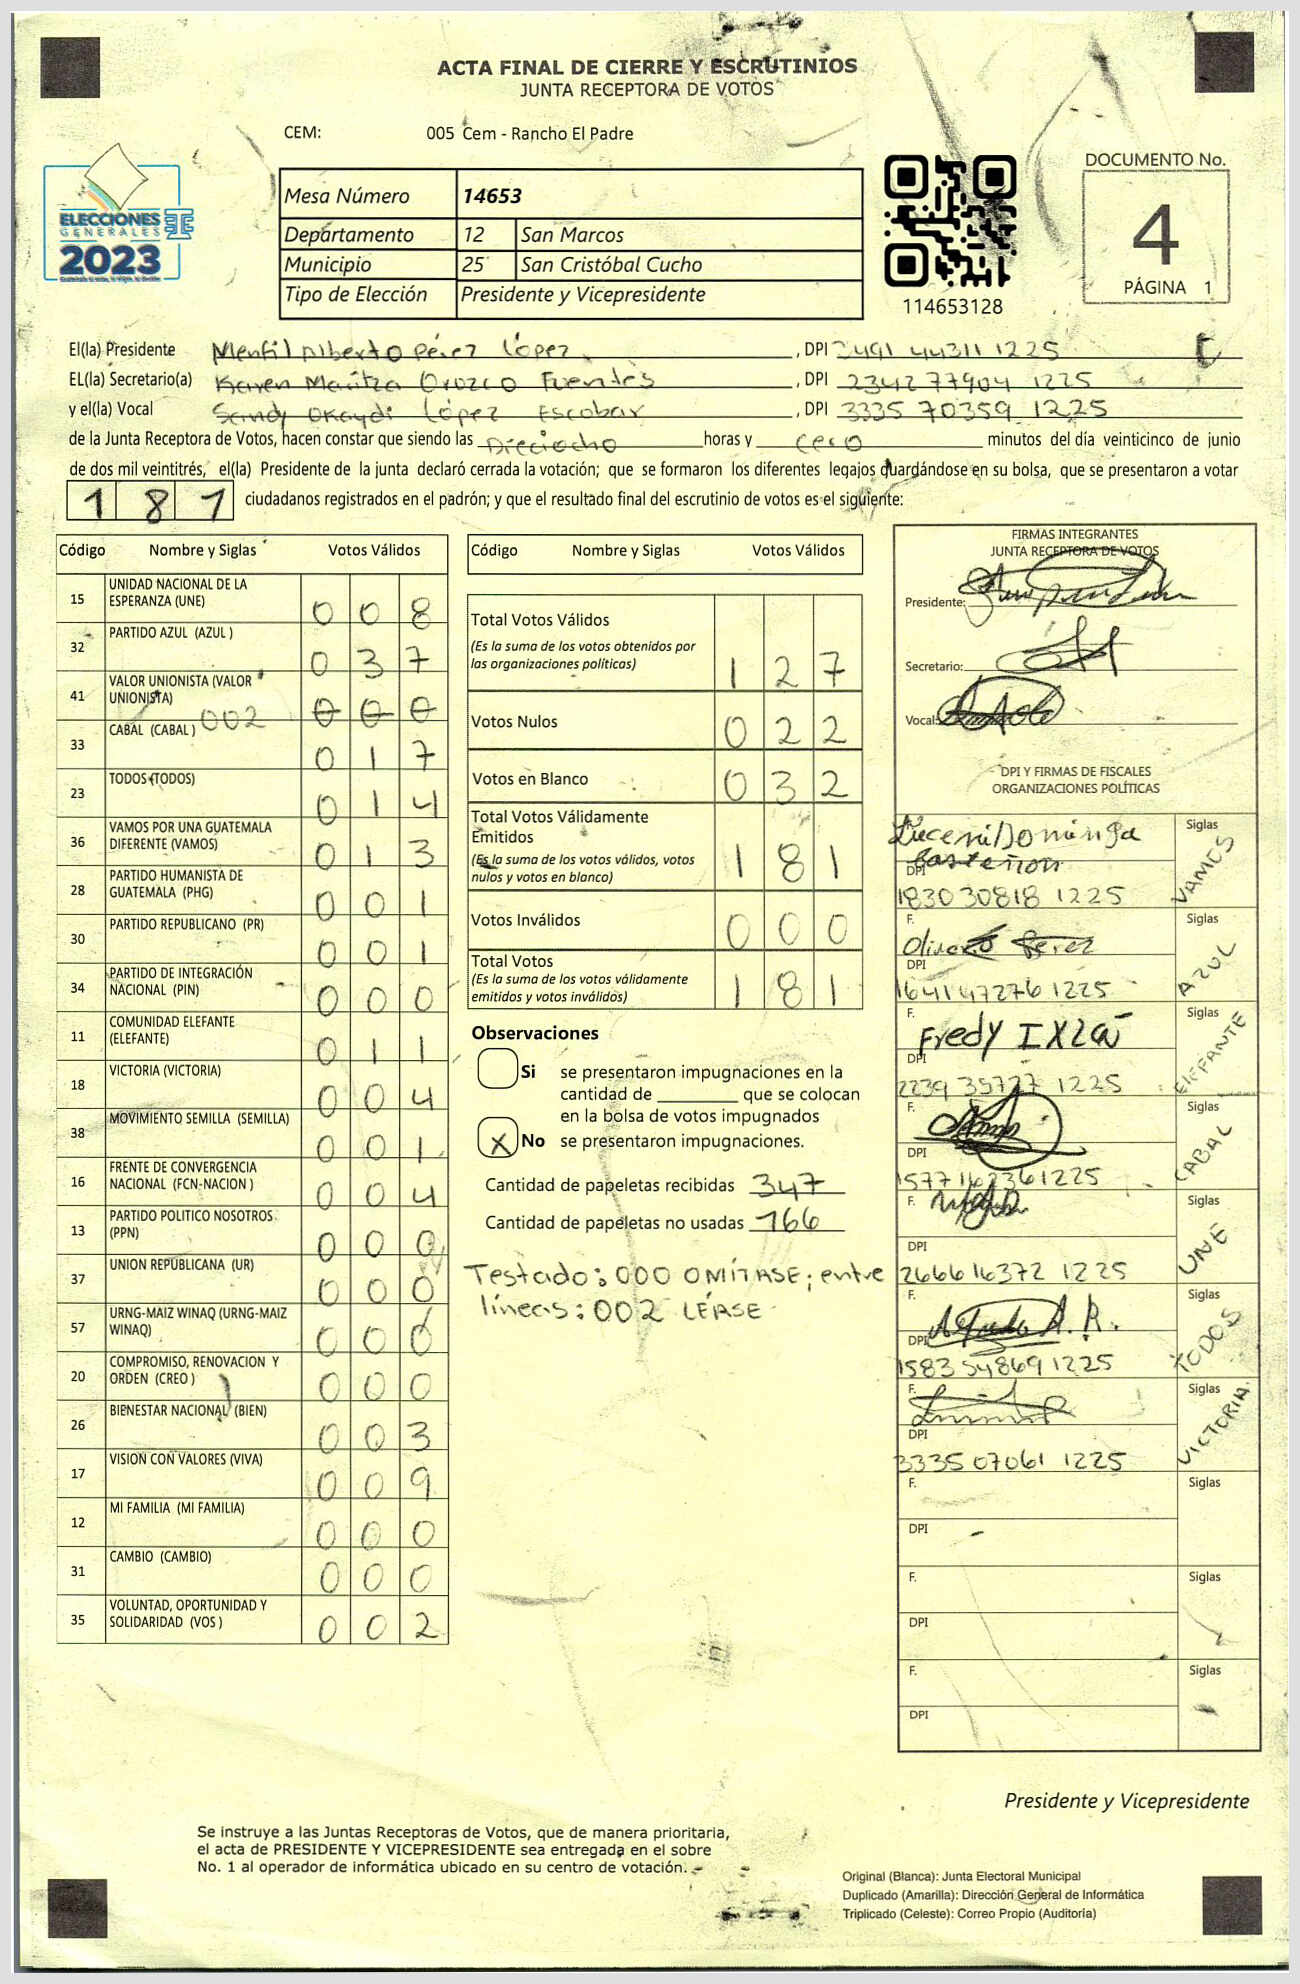 ACTA FINAL DE CIERRE Y ESCRUTINIOS
JUNTA RECEPTORA DE VOTOS
CEM: 005 Cem - Rancho El Padre
DOCUMENTO No.
4
PÁGINA 1
ELECCIONES
GENERALES
2023
Mesa Número 14653
Departamento 12 San Marcos
Municipio 25 San Cristóbal Cucho
Tipo de Elección Presidente y Vicepresidente
114653128
El(la) Presidente Menfil Alberto Pérez López, DPI 2491 44311 1225
EL(la) Secretario(a) Karen Maritza Orozco Fuentes, DPI 2342 77904 1225
y el(la) Vocal Sandy Okaydi López Escobar, DPI 3335 70359 1225
de la Junta Receptora de Votos, hacen constar que siendo las Dieciocho horas y cero minutos del día veinticinco de junio
de dos mil veintitrés, el(la) Presidente de la junta declaró cerrada la votación; que se formaron los diferentes legajos guardándose en su bolsa, que se presentaron a votar
181 ciudadanos registrados en el padrón; y que el resultado final del escrutinio de votos es el siguiente:
Código Nombre y Siglas Votos Válidos
15 UNIDAD NACIONAL DE LA ESPERANZA (UNE) 0 0 8
32 PARTIDO AZUL (AZUL ) 0 3 7
41 VALOR UNIONISTA (VALOR UNIONISTA) 002 0 0 0
33 CABAL (CABAL ) 0 1 7
23 TODOS (TODOS) 0 1 4
36 VAMOS POR UNA GUATEMALA DIFERENTE (VAMOS) 0 1 3
28 PARTIDO HUMANISTA DE GUATEMALA (PHG) 0 0 1
30 PARTIDO REPUBLICANO (PR) 0 0 1
34 PARTIDO DE INTEGRACIÓN NACIONAL (PIN) 0 0 0
11 COMUNIDAD ELEFANTE (ELEFANTE) 0 1 1
18 VICTORIA (VICTORIA) 0 0 4
38 MOVIMIENTO SEMILLA (SEMILLA) 0 0 1
16 FRENTE DE CONVERGENCIA NACIONAL (FCN-NACION ) 0 0 4
13 PARTIDO POLITICO NOSOTROS (PPN) 0 0 0
37 UNION REPUBLICANA (UR) 0 0 0
57 URNG-MAIZ WINAQ (URNG-MAIZ WINAQ) 0 0 0
20 COMPROMISO, RENOVACION Y ORDEN (CREO ) 0 0 0
26 BIENESTAR NACIONAL (BIEN) 0 0 3
17 VISION CON VALORES (VIVA) 0 0 9
12 MI FAMILIA (MI FAMILIA) 0 0 0
31 CAMBIO (CAMBIO) 0 0 0
35 VOLUNTAD, OPORTUNIDAD Y SOLIDARIDAD (VOS ) 0 0 2
Código Nombre y Siglas Votos Válidos
Total Votos Válidos 1 2 7
(Es la suma de los votos obtenidos por
las organizaciones políticas)
Votos Nulos 0 2 2
Votos en Blanco 0 3 2
Total Votos Válidamente
Emitidos 1 8 1
(Es la suma de los votos válidos, votos
nulos y votos en blanco)
Votos Inválidos 0 0 0
Total Votos 1 8 1
(Es la suma de los votos válidamente
emitidos y votos inválidos)
Observaciones
Si se presentaron impugnaciones en la
cantidad de ________ que se colocan
en la bolsa de votos impugnados
X No se presentaron impugnaciones.
Cantidad de papeletas recibidas 347
Cantidad de papeletas no usadas 166
Testado: 000 OMÍTASE; entre
líneas: 002 LÉASE
FIRMAS INTEGRANTES
JUNTA RECEPTORA DE VOTOS
Presidente:
Secretario:
Vocal:
DPI Y FIRMAS DE FISCALES
ORGANIZACIONES POLÍTICAS
Domínga
DPI 1830 30818 1225 Siglas VAMOS
F. Perez
DPI 1641147276 1225 Siglas AZUL
F. Fredy
DPI 2239 35727 1225 Siglas ELEFANTE
F.
DPI 1577 162361225 Siglas CABAL
F.
DPI 266616372 1225 Siglas UNE
F. A.R.
DPI 1583 54869 1225 Siglas TODOS
F.
DPI 3335 07061 1225 Siglas VICTORIA
F. Siglas
DPI
F. Siglas
DPI
F. Siglas
DPI
Presidente y Vicepresidente
Se instruye a las Juntas Receptoras de Votos, que de manera prioritaria,
el acta de PRESIDENTE Y VICEPRESIDENTE sea entregada en el sobre
No. 1 al operador de informática ubicado en su centro de votación.
Original (Blanca): Junta Electoral Municipal
Duplicado (Amarilla): Dirección General de Informática
Triplicado (Celeste): Correo Propio (Auditoría)